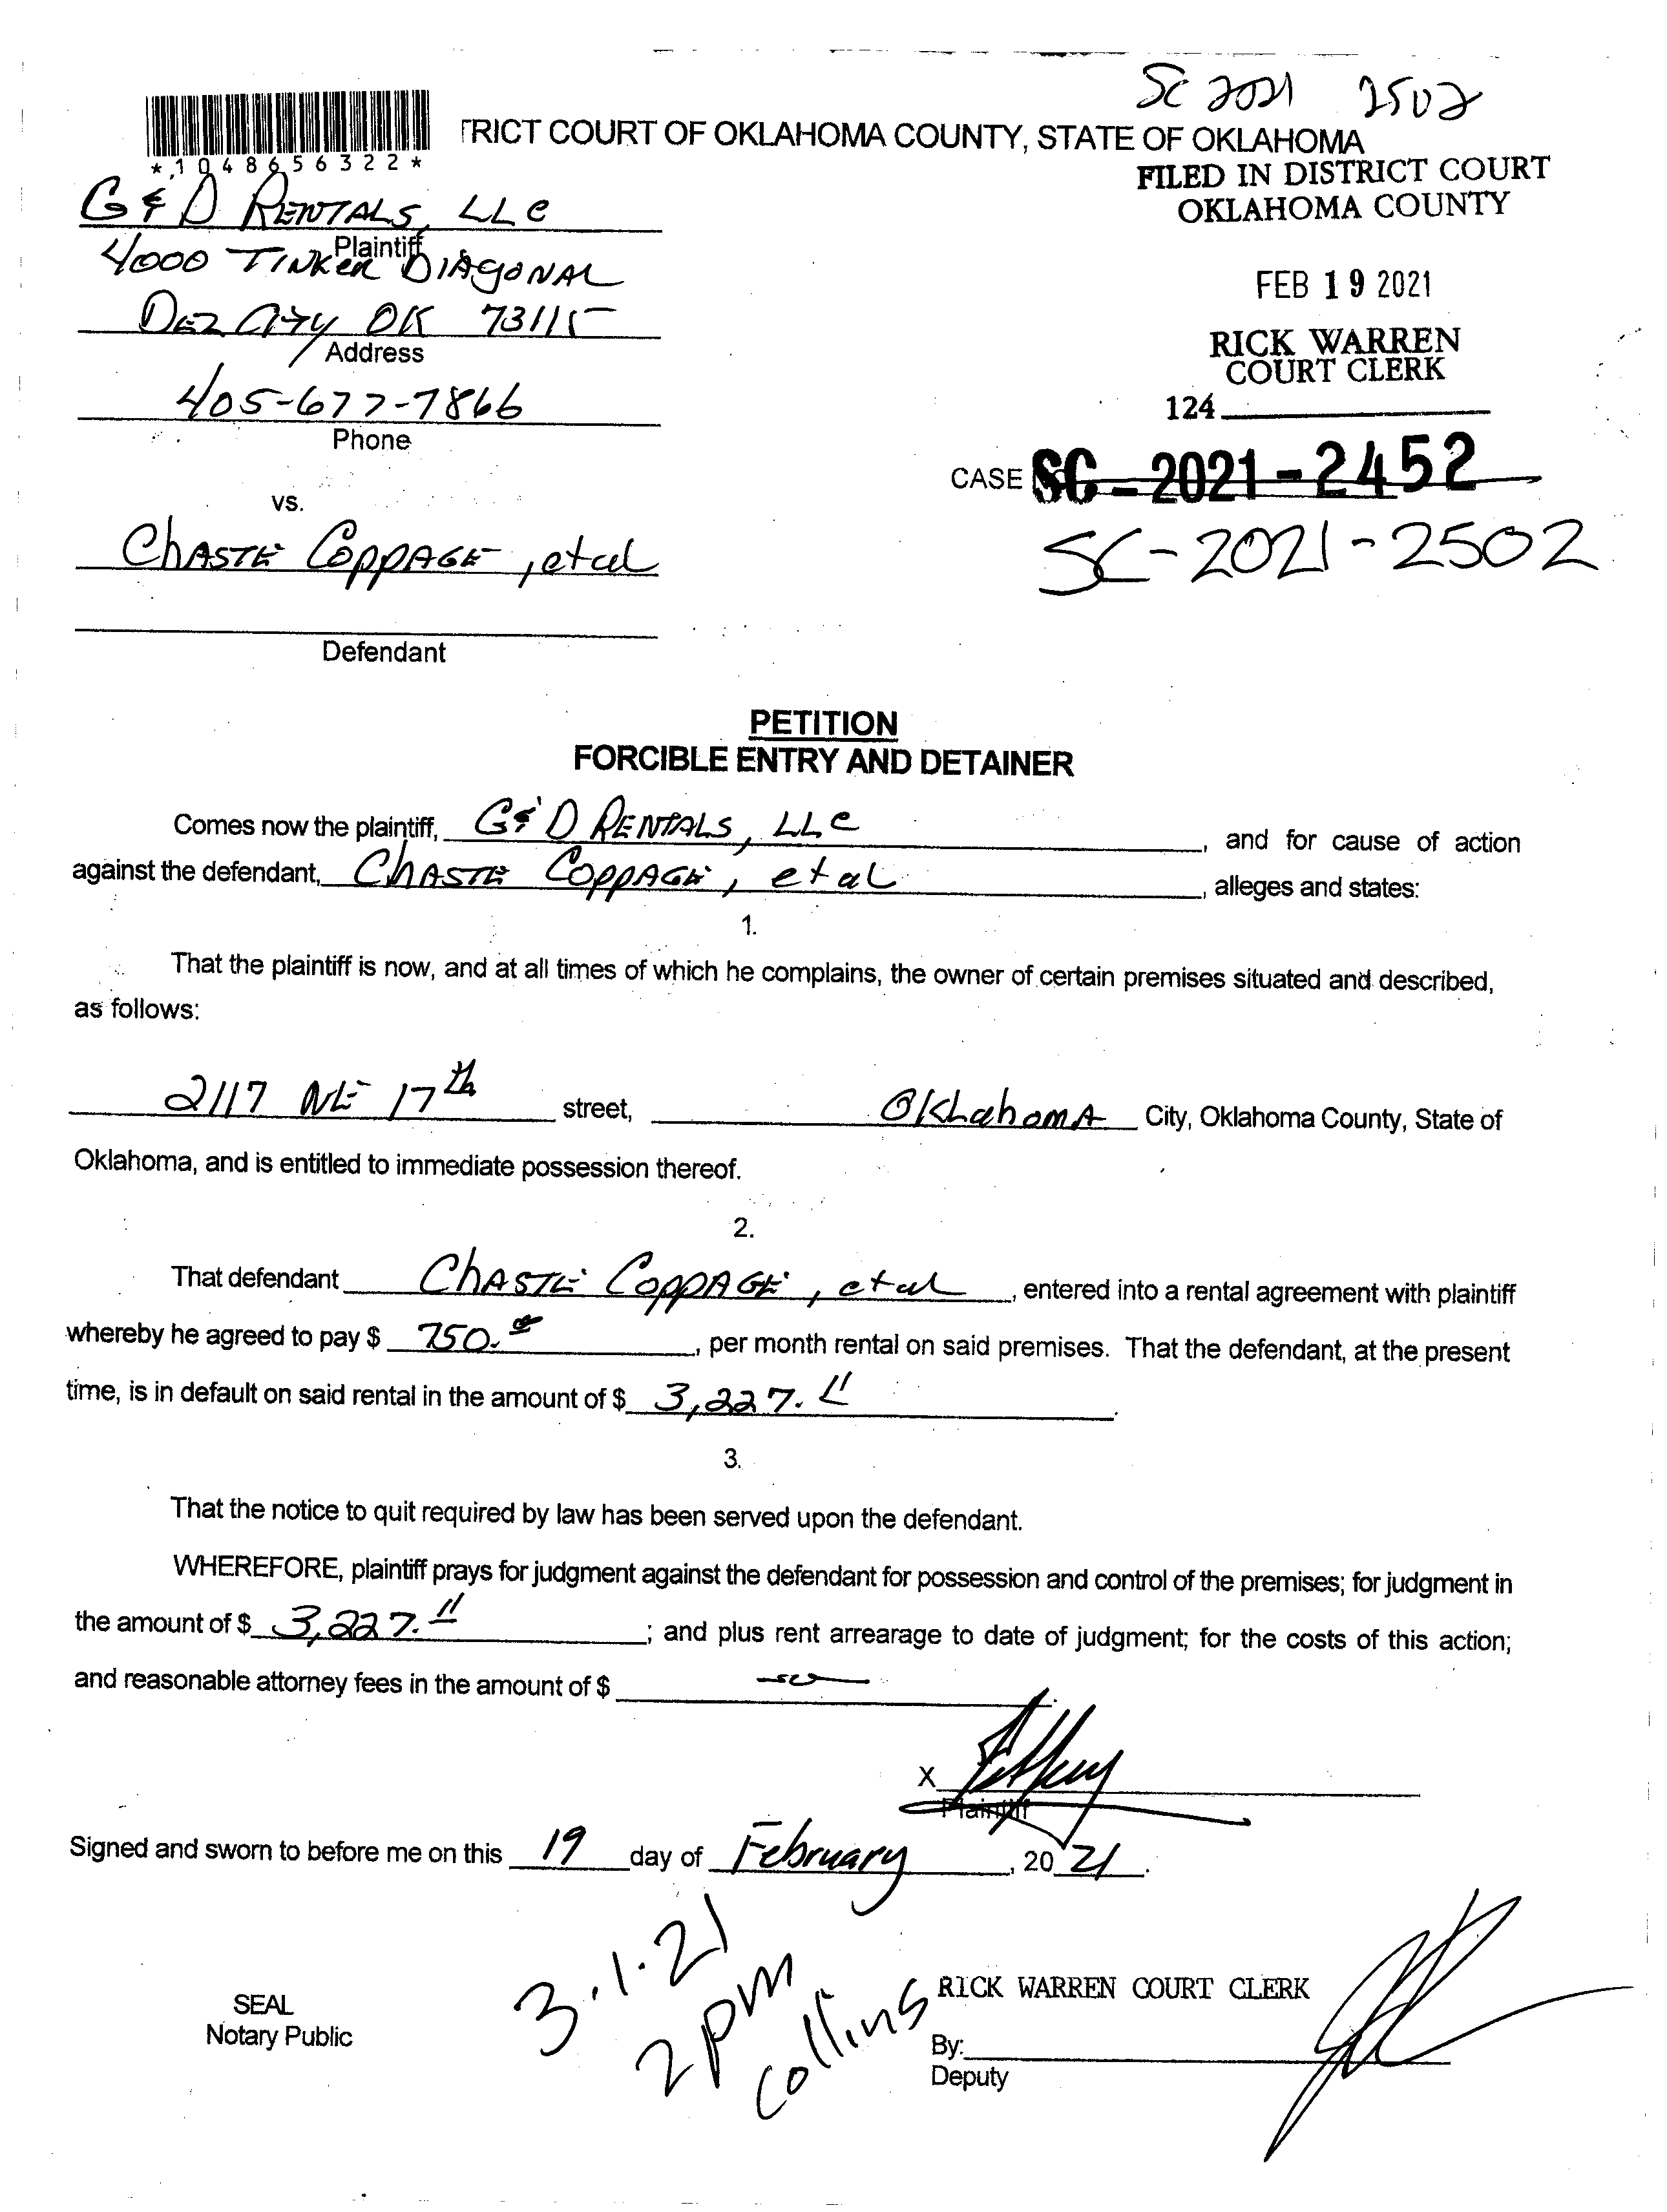 SC 2021 2502
*1048656322*
TRICT COURT OF OKLAHOMA COUNTY, STATE OF OKLAHOMA
FILED IN DISTRICT COURT
OKLAHOMA COUNTY
G & D RENTALS, LLC
Plaintiff
4000 TINKER DIAGONAL
FEB 19 2021
DEL CITY OK 73115
Address
RICK WARREN
COURT CLERK
405-677-7866
Phone
124
CASE SC-2021-2452
vs.
SC-2021-2502
CHASTE COPPAGE, etal
Defendant
PETITION
FORCIBLE ENTRY AND DETAINER
Comes now the plaintiff, G & D RENTALS, LLC, and for cause of action
against the defendant, CHASTE COPPAGE, etal, alleges and states:
1.
That the plaintiff is now, and at all times of which he complains, the owner of certain premises situated and described,
as follows:
2117 NE 17th street, OKLAHOMA City, Oklahoma County, State of
Oklahoma, and is entitled to immediate possession thereof.
2.
That defendant CHASTE COPPAGE, etal, entered into a rental agreement with plaintiff
whereby he agreed to pay $ 750., per month rental on said premises. That the defendant, at the present
time, is in default on said rental in the amount of $ 3,227.11.
3.
That the notice to quit required by law has been served upon the defendant.
WHEREFORE, plaintiff prays for judgment against the defendant for possession and control of the premises; for judgment in
the amount of $ 3,227.11; and plus rent arrearage to date of judgment; for the costs of this action;
and reasonable attorney fees in the amount of $
X
Plaintiff
Signed and sworn to before me on this 19 day of February, 2021.
3.1.21
2pm
Collins
SEAL
Notary Public
RICK WARREN COURT CLERK
By:
Deputy